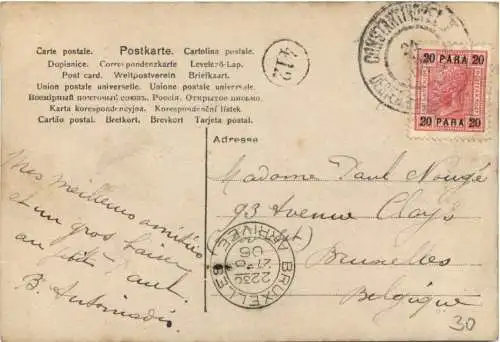 Carte postale. Postkarte. Cartolina postale.
Dopisnice. Correspondenzkarte Levelező-Lap.
Post card. Weltpostverein Briefkaart.
Union postale universelle. Unione postale universale.
Всемірный почтовый союзъ. Россія. Открытое письмо.
Karta korespondencyjna. Korespondenční lístek.
Cartão postal. Bretkort. Brevkort Tarjeta postal.
412
CONSTANTINOPEL
20 PARA 20
20 PARA 20
Adresse
Madame Paul Nougé
93 Avenue Clays
Bruxelles
Belgique
Mes meilleures amitiés
et un gros baiser
au petit
B. Antoniadis.
BRUXELLES
2230
06
ARRIVÉE
30